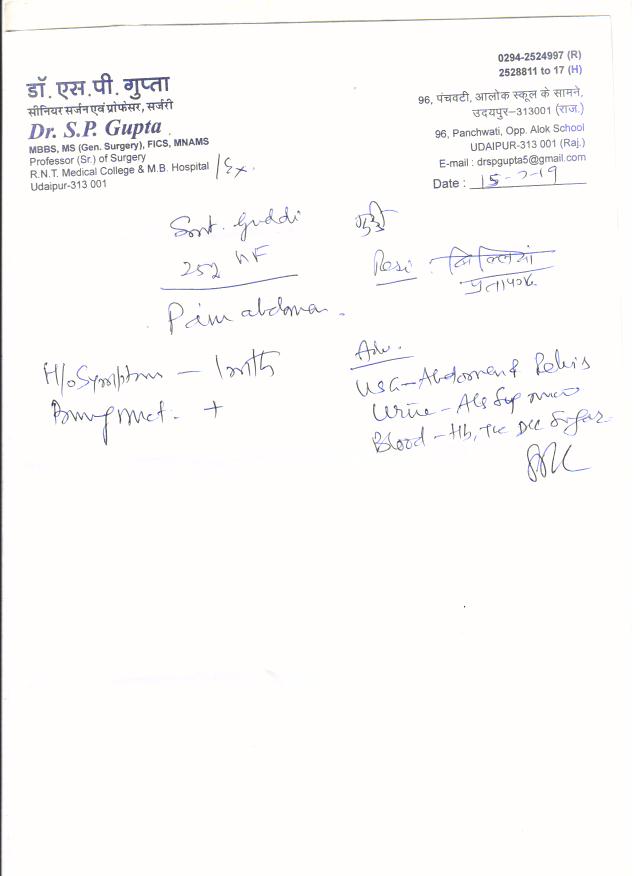 0294-2524997 (R)
2528811 to 17 (H)
डॉ. एस.पी. गुप्ता
सीनियर सर्जन एवं प्रोफेसर, सर्जरी
Dr. S.P. Gupta
MBBS, MS (Gen. Surgery), FICS, MNAMS
Professor (Sr.) of Surgery
R.N.T. Medical College & M.B. Hospital / Ex.
Udaipur-313 001
96, पंचवटी, आलोक स्कूल के सामने,
उदयपुर–313001 (राज.)
96, Panchwati, Opp. Alok School
UDAIPUR-313 001 (Raj.)
E-mail : drspgupta5@gmail.com
Date : 15-7-19
Smt. Guddi गुड्डी
Resi :
Pain abdomen.
H/o Symptom – 1 mth
Burning mict. +
Adv.
USG – Abdomen & Pelvis
Urine – Alb Sug micro
Blood – Hb, TLC DLC Sugar